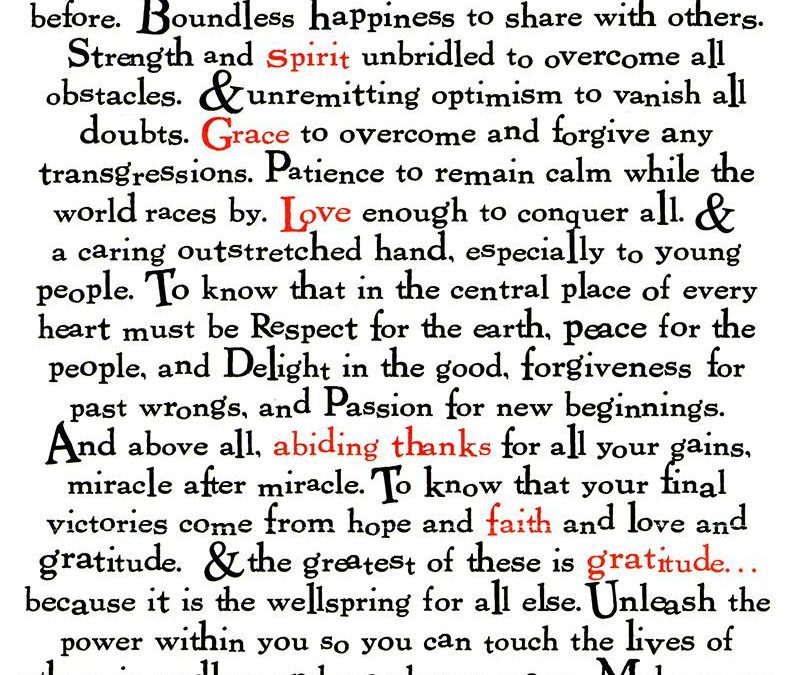 before. Boundless happiness to share with others.
Strength and spirit unbridled to overcome all
obstacles. & unremitting optimism to vanish all
doubts. Grace to overcome and forgive any
transgressions. Patience to remain calm while the
world races by. Love enough to conquer all. &
a caring outstretched hand, especially to young
people. To know that in the central place of every
heart must be Respect for the earth, peace for the
people, and Delight in the good, forgiveness for
past wrongs, and Passion for new beginnings.
And above all, abiding thanks for all your gains,
miracle after miracle. To know that your final
victories come from hope and faith and love and
gratitude. & the greatest of these is gratitude...
because it is the wellspring for all else. Unleash the
power within you so you can touch the lives of